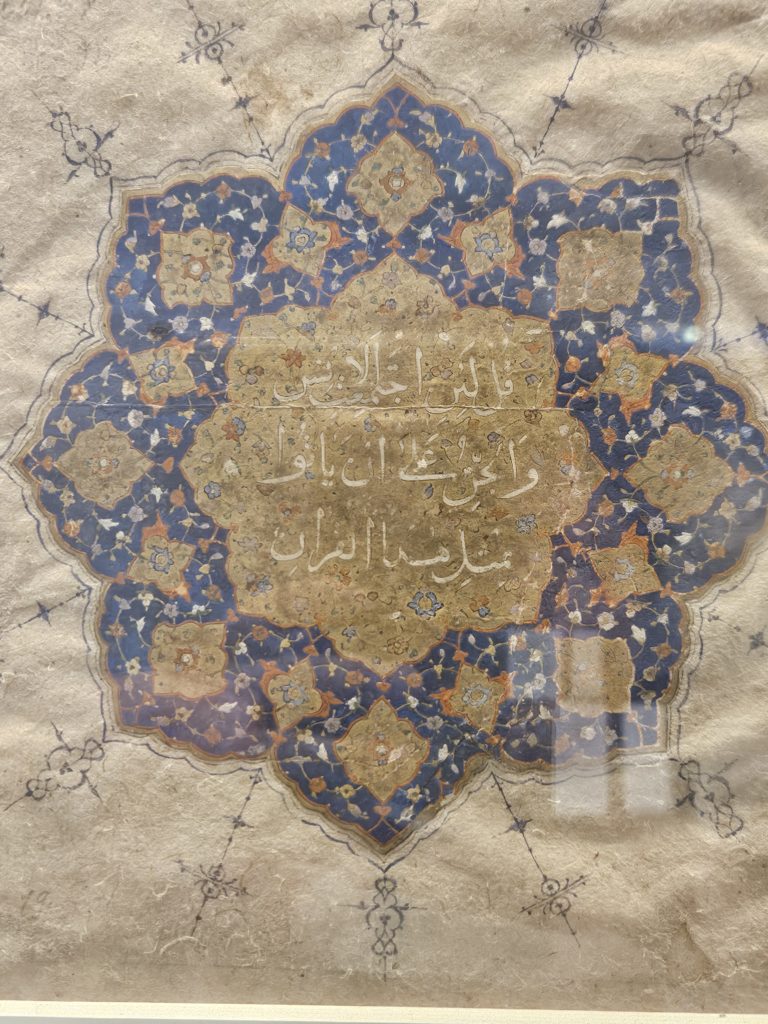 قل لئن اجتمعت الانس
والجن على ان ياتوا
بمثل هذا القران